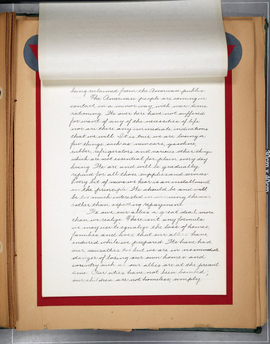 being returned from the American public.
The American people are coming in
contact in a minor way with war-time
rationing. No one here has suffered
for want of any of the necessities of life
nor are there any immediate indications
that we will. It is true we are losing a
few things, such as new cars, gasoline
rubber, refrigerators and various other things
which are not essential for plain every day
living. We are and will be gradually
repaid for all those supplies and money.
Every bit of succor has been
in the principle. We should be and will
be much interested in winning them
rather than expecting repayment.
We owe our allies a great deal more
than we realize. There isn't any formula
we may use to equalize the loss of homes,
families and lives that our allies have
endured while we prepared. We have had
our casualties too but we are in no immediate
danger of losing our own homes and
country such as our allies are at the present
time. Our cities have not been bombed,
our children are not homeless, simply